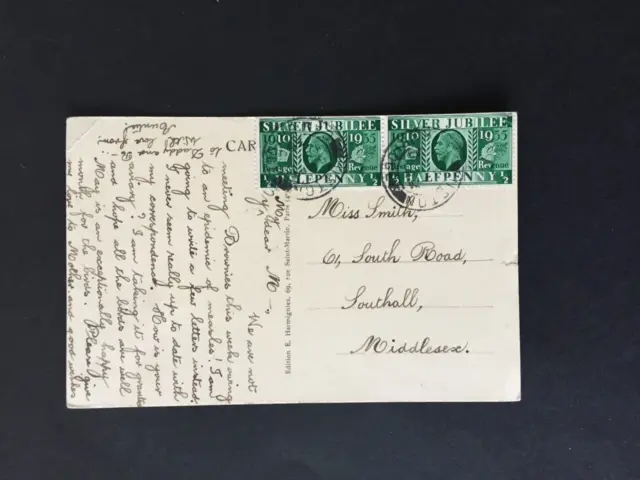 CAR
SILVER JUBILEE
1910 1935
Postage Revenue
½ HALFPENNY ½
SILVER JUBILEE
1910 1935
Postage Revenue
½ HALFPENNY ½
Miss Smith,
61, South Road,
Southall,
Middlesex.
Edition E. Hermignies, 69, rue Saint-Martin, Paris
My dear M—
We are not
meeting Brownies this week owing
to an epidemic of measles! I am
going to write a few letters instead.
I never seem really up to date with
my correspondence. How is your
? I am taking it for granted
and hope all the babes are well
May is an exceptionally happy
month for the lives. Please give
my love to Mother and good wishes
to Daddy and
With love from
Auntie!